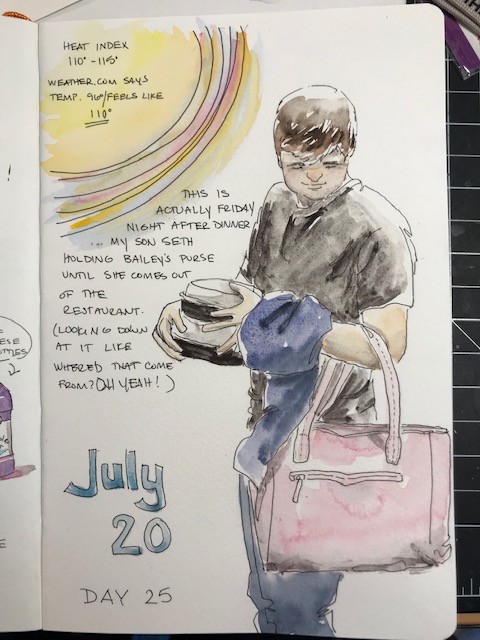 HEAT INDEX
110° - 115°
WEATHER.COM SAYS
TEMP. 96°/FEELS LIKE
110°
THIS IS
ACTUALLY FRIDAY
NIGHT AFTER DINNER
... MY SON SETH
HOLDING BAILEY'S PURSE
UNTIL SHE COMES OUT
OF THE
RESTAURANT.
(LOOKING DOWN
AT IT LIKE
WHERE'D THAT COME
FROM? OH YEAH!)
July
20
DAY 25